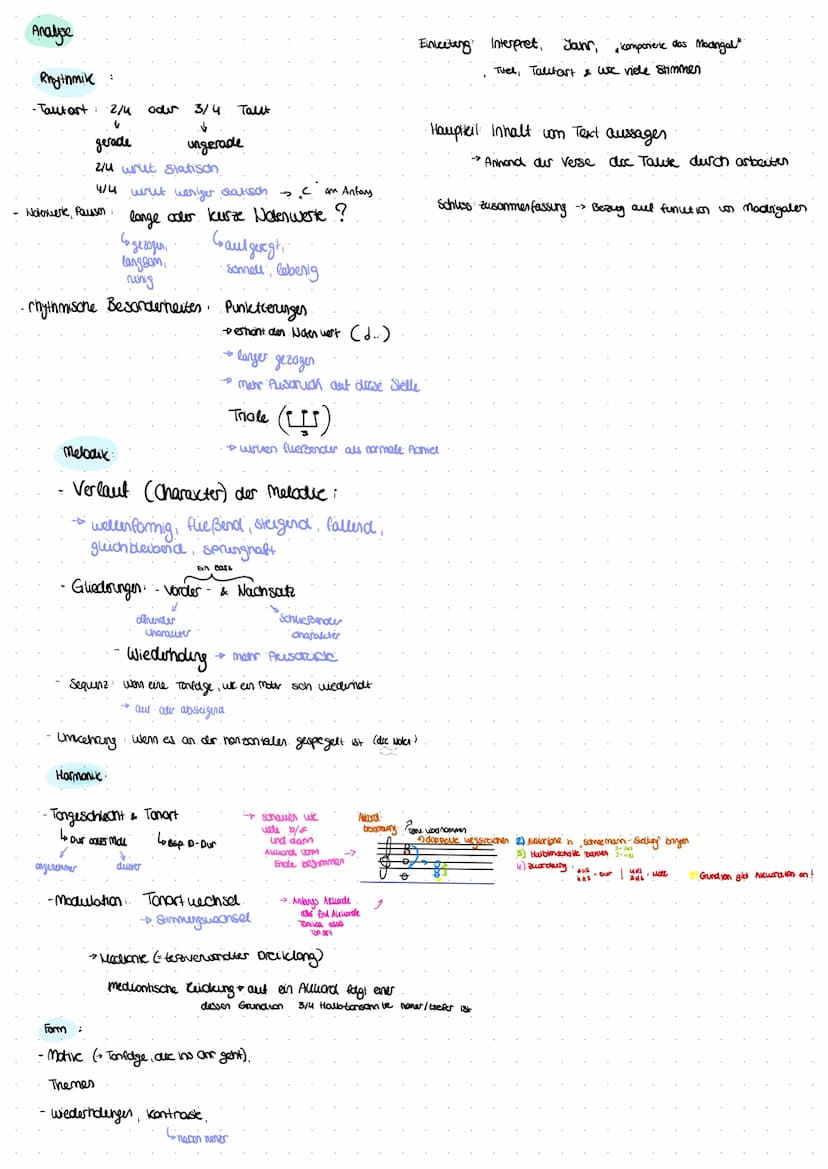 Analyse
Einleitung: Interpret, Jahr, „komponierte das Madrigal"
, Titel, Taktart & wie viele Stimmen
Rhythmik :
- Taktart : 2/4 oder 3/4 Takt
gerade ungerade
2/4 wirkt statisch
4/4 wirkt weniger statisch → „C" am Anfang
Hauptteil: Inhalt vom Text aussagen
→ Anhand der Verse die Takte durch arbeiten
Schluss: Zusammenfassung → Bezug auf Funktion von Madrigalen
- Notenwerte, Pausen : lange oder kurze Notenwerte ?
↳ gezogen, langsam, ruhig
↳ aufgeregt, schnell, lebendig
- rhythmische Besonderheiten : Punktierungen
→ erhöht den Notenwert (d..)
→ länger gezogen
→ mehr Ausdruck auf diese Stelle
Triole ( 3 )
→ wirken fließender als normale Achtel
Melodik:
- Verlauf (Charakter) der Melodie :
→ wellenförmig, fließend, steigend, fallend,
gleichbleibend, sprunghaft
ein Satz
- Gliederungen: - Vorder - & Nachsatz
öffnender Charakter
schließender Charakter
- Wiederholung → mehr Ausdruck
- Sequenz: wenn eine Tonfolge, wie ein Motiv sich wiederholt
→ auf oder absteigend
- Umkehrung: wenn es an der horizontalen gespiegelt ist (die Noten)
Harmonik:
- Tongeschlecht & Tonart
↳ Dur oder Moll ↳ Bsp. D-Dur
angenehmer düster
→ schauen wie
viele b/#
und dann
Akkord vom
Ende bestimmen →
Akkord-
bestimmung
1) doppelte wegstreichen 2) Akkordtöne in „Schneemann-Stellung" bringen
3) Halbtonschritte zählen
4) Zuordnung: Dur | Moll 5) Grundton gibt Akkordton an!
- Modulation: Tonartwechsel
→ Stimmungswechsel
→ Anfangs Akkorde
oder End Akkorde
Tonika oder
Tonart
→ Mediante (= terzverwandter Dreiklang)
mediantische Rückung → auf ein Akkord folgt einer
dessen Grundton 3/4 Halbtonschritte höher/tiefer ist
Form :
- Motive (→ Tonfolge, die ins Ohr geht),
Themen
- Wiederholungen, Kontraste,